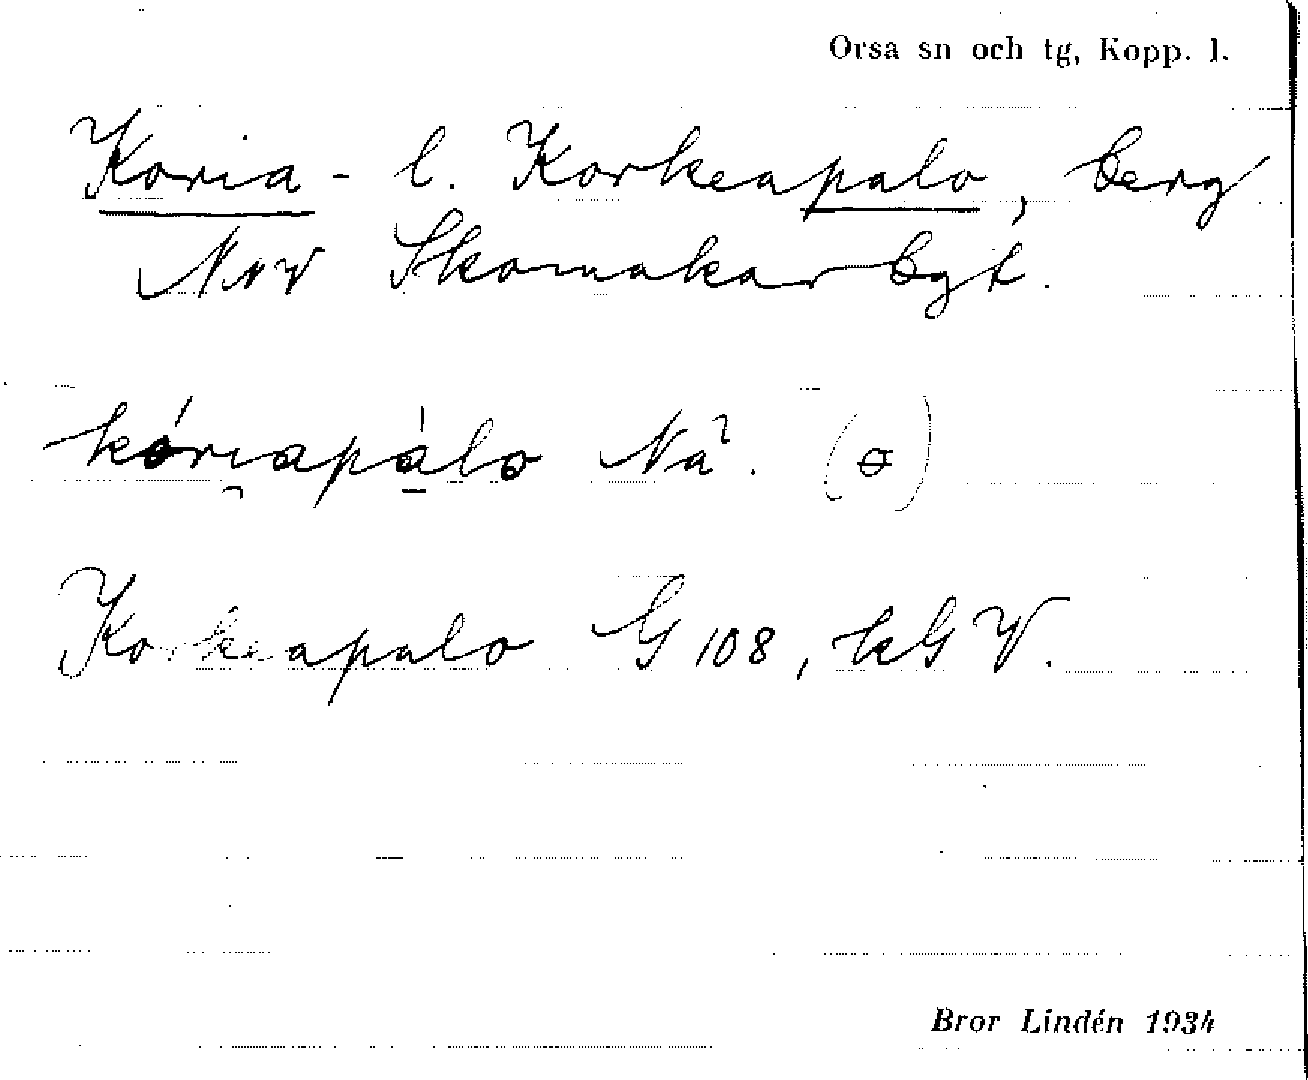 Orsa sn och tg, Kopp. l.
Koria- l. Korkeapalo, berg
NNV Skomakarbgt.
kóri̯apàlo Nä². (ɵ)
Korkeapalo G 108, kGV.
Bror Lindén 1934